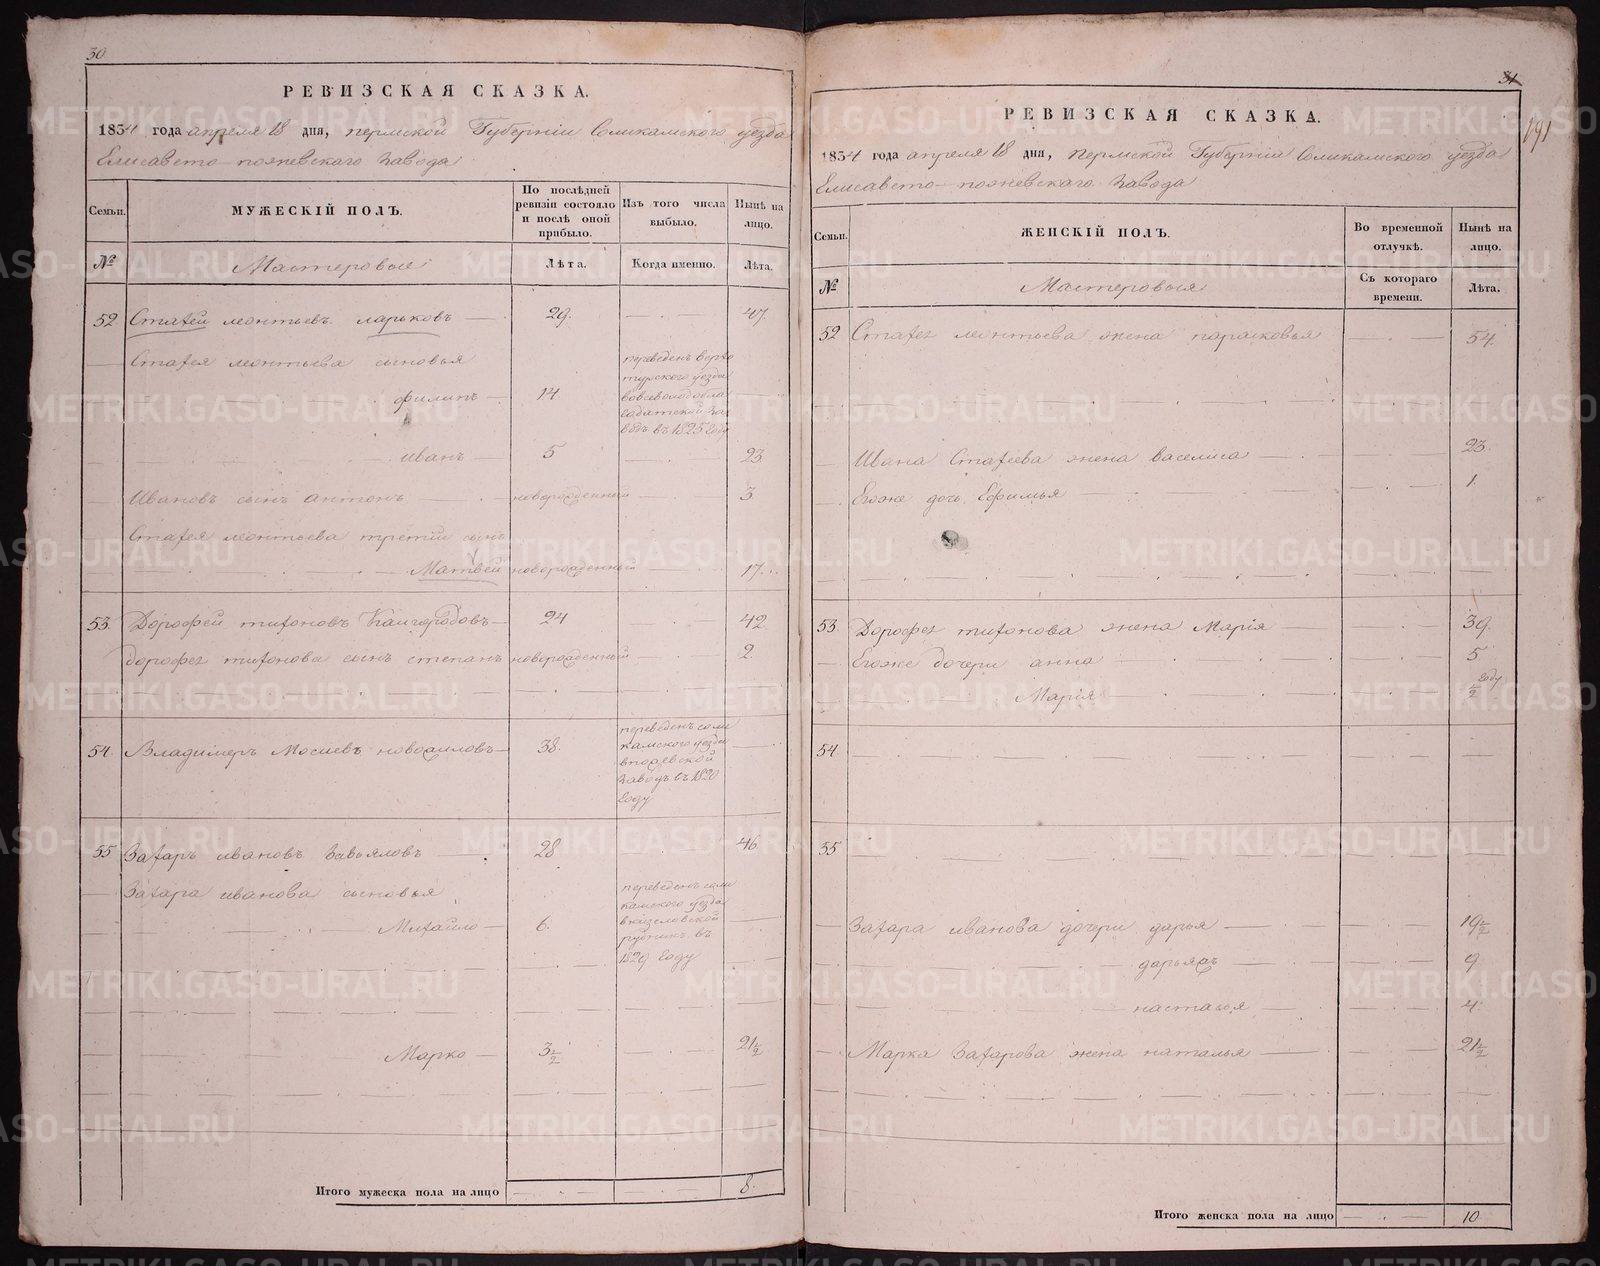 30
РЕВИЗСКАЯ СКАЗКА.
1834 года апреля 18 дня, пермской Губернiи Соликамского уезда
Елисавето-пожевскаго завода
Семьи. МУЖЕСКIЙ ПОЛЪ. По послѣдней ревизiи состояло и послѣ оной прибыло. Изъ того числа выбыло. Нынѣ на лицо.
№ Мастеровые Лѣта. Когда именно. Лѣта.
52 Статей леонтьевъ ларьковъ 29. 47.
Статея леонтьева сыновья
филипъ 14 переведенъ верхотурского уезда во всеволодоблагодатской заводъ въ 1825 году
иванъ 5 23
Ивановъ сынъ антонъ новорожденный 3
Статея леонтьева третiй сынъ
Матвей новорожденный 17
53. Дорофей тихоновъ Кайгородовъ 24 42
дорофея тихонова сынъ степанъ новорожденный 2.
54. Владимеръ Мосиевъ новожиловъ 38. переведенъ соликамского уезда в пожевской заводъ въ 1820 году
55 Захаръ ивановъ Завьяловъ 28 46
Захара иванова сыновья
Михайло 6. переведенъ соликамского уезда в кизеловской рудникъ въ 1829 году
Марко 3 1/2 21 1/2
Итого мужеска пола на лицо 8.
31
191
РЕВИЗСКАЯ СКАЗКА.
1834 года апреля 18 дня, пермской Губернiи Соликамского уезда
Елисавето-пожевскаго завода
Семьи. ЖЕНСКIЙ ПОЛЪ. Во временной отлучкѣ. Нынѣ на лицо.
№ Мастеровыя Съ котораго времени. Лѣта.
52 Статея леонтьева жена парасковья 54.
Ивана Статеева жена василиса 23.
Егоже дочь Ефимья 1.
53. Дорофея тихонова жена Марiя 39.
Егоже дочери анна 5
Марiя 1/2 году
54
55
Захара иванова дочери дарья 19 1/2
дарьяжъ 9
настасья 4
Марка Захарова жена наталья 21 1/2
Итого женска пола на лицо 10
METRIKI.GASO-URAL.RU